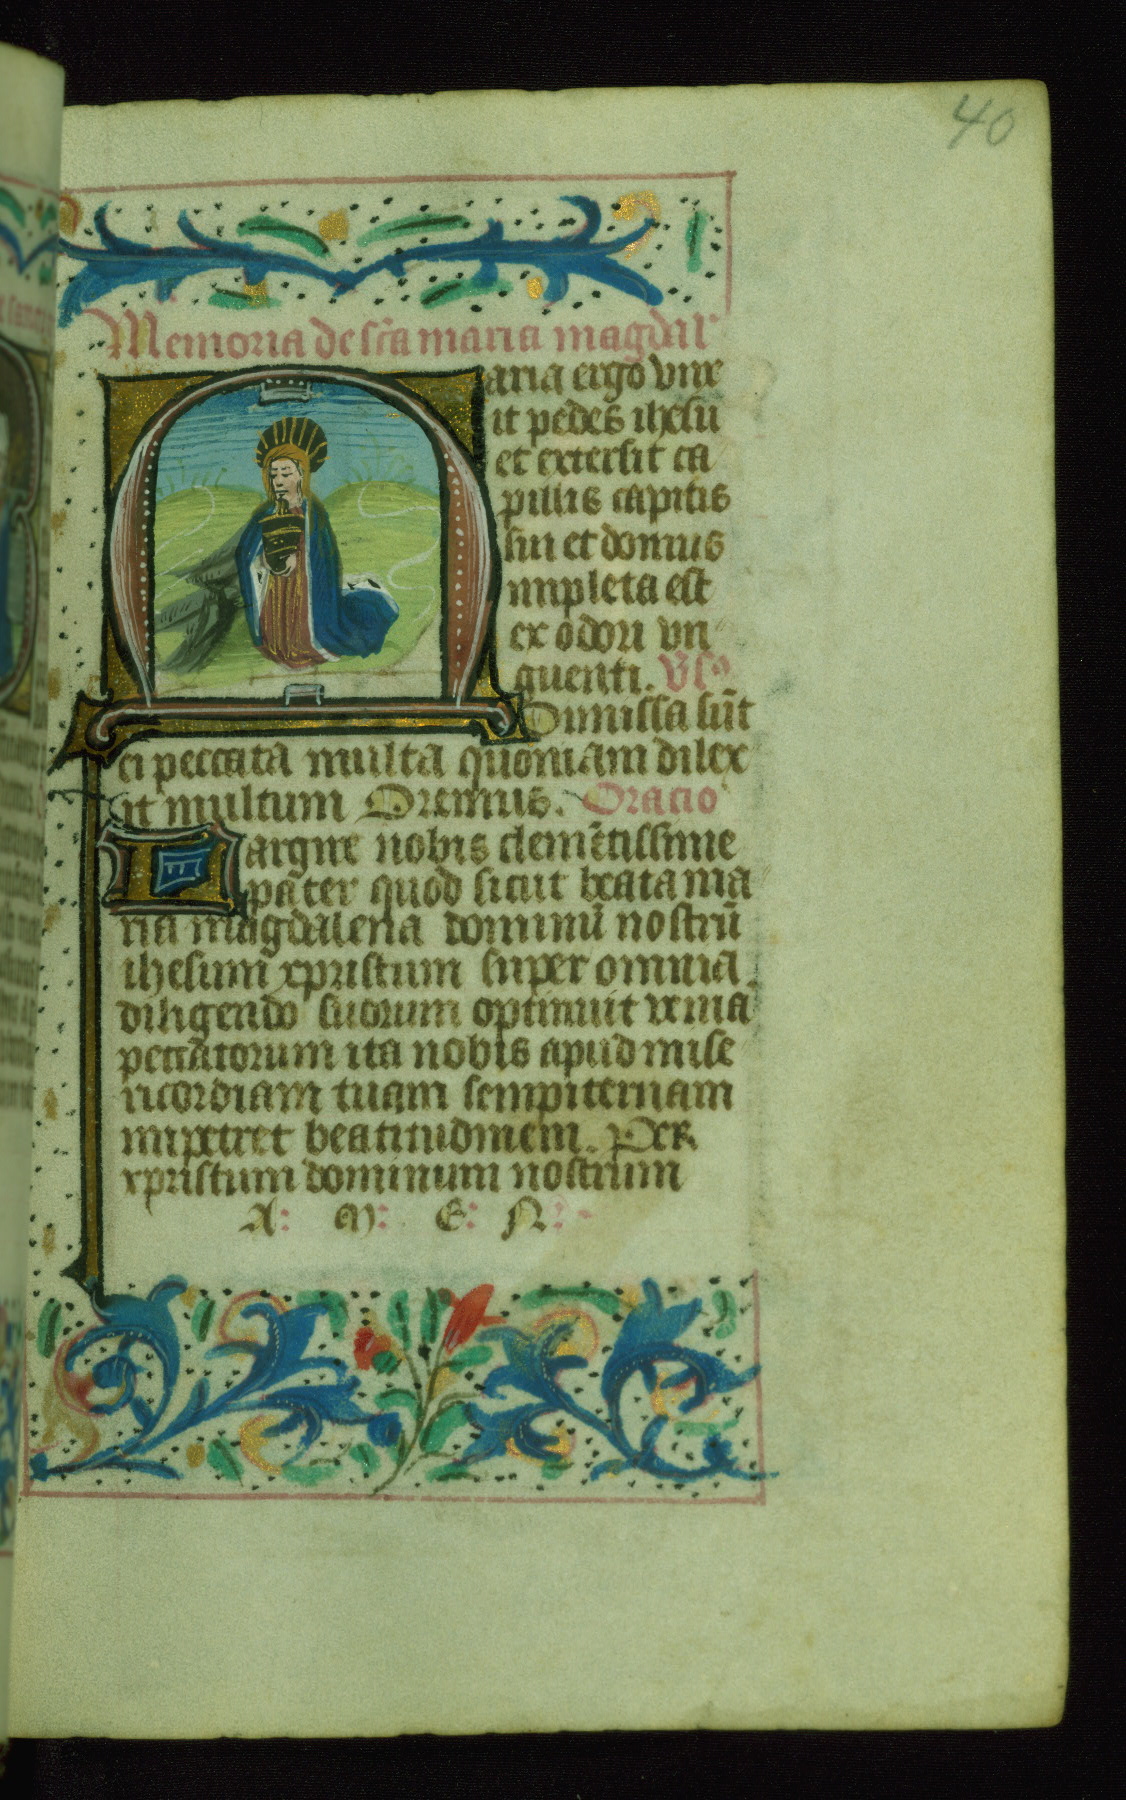 40
Memoria de sc̄a maria magdal'
Maria ergo vnx
it pedes ihesu
et extersit ca
pillis capitis
sui et domus
impleta est
ex odori vn
guenti. Vs'
Dimissa sūt
ei peccata multa quoniam dilex
it multum Oremus. Oracio
Largire nobis clemētissime
pater quod sicut beata ma
ria magdalena dominū nostrū
ihesum xpristum super omnia
diligendo suorum optinuit venia
peccatorum ita nobis apud mise
ricordiam tuam sempiternam
impetret beatitudinem. Per
xpristum dominum nostrum
A: M: E: N: